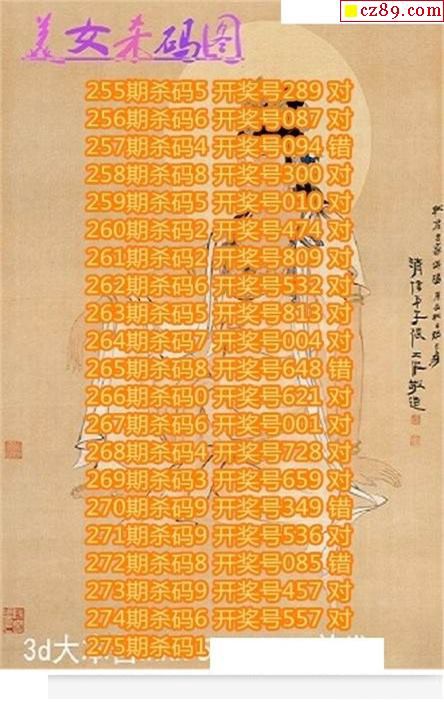 cz89.com
美女杀码图
255期杀码5 开奖号289 对
256期杀码6 开奖号087 对
257期杀码4 开奖号094 错
258期杀码8 开奖号300 对
259期杀码5 开奖号010 对
260期杀码2 开奖号474 对
261期杀码2 开奖号809 对
262期杀码6 开奖号532 对
263期杀码5 开奖号813 对
264期杀码7 开奖号004 对
265期杀码8 开奖号648 错
266期杀码0 开奖号621 对
267期杀码6 开奖号001 对
268期杀码4 开奖号728 对
269期杀码3 开奖号659 对
270期杀码9 开奖号349 错
271期杀码9 开奖号536 对
272期杀码8 开奖号085 错
273期杀码9 开奖号457 对
274期杀码6 开奖号557 对
275期杀码1
3d大